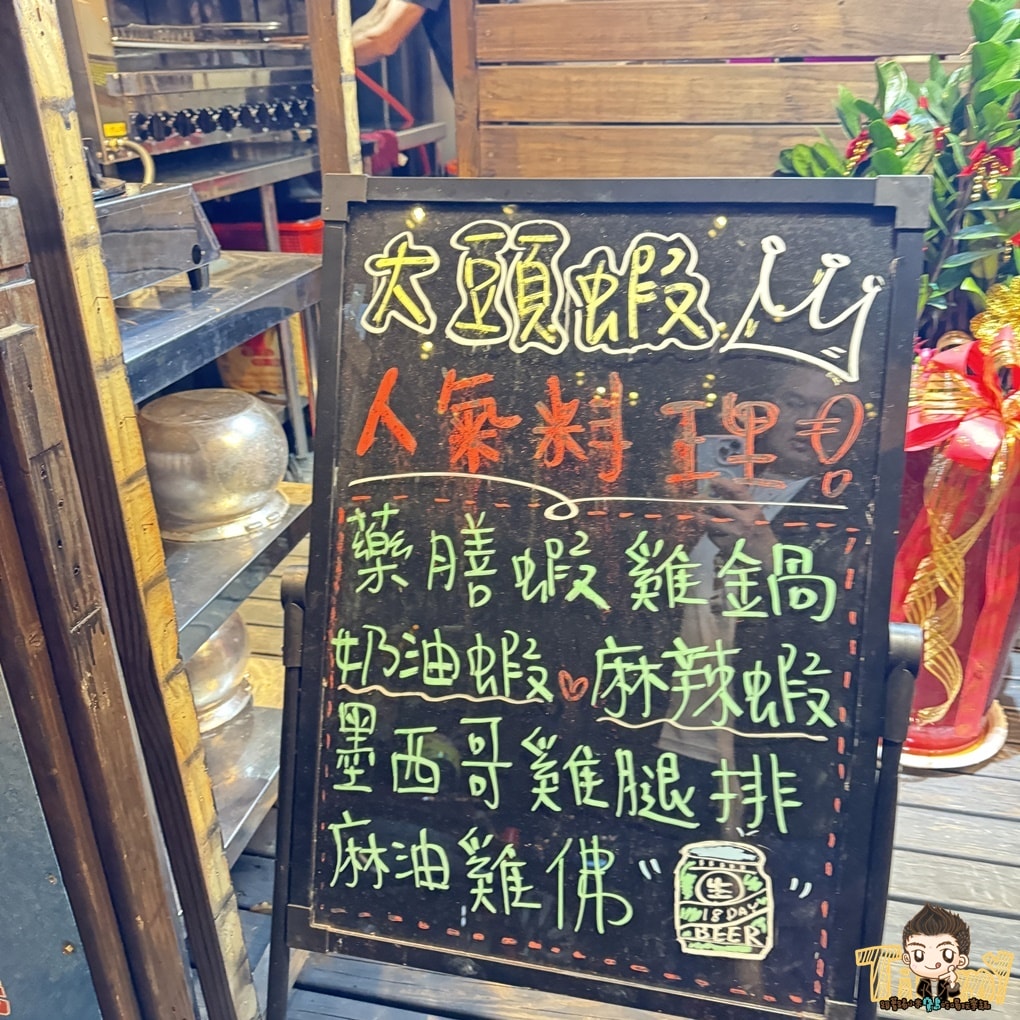 大頭蝦
人氣料理
藥膳蝦雞鍋
奶油蝦 麻辣蝦
墨西哥雞腿排
麻油雞佛
生
18 DAY
BEER